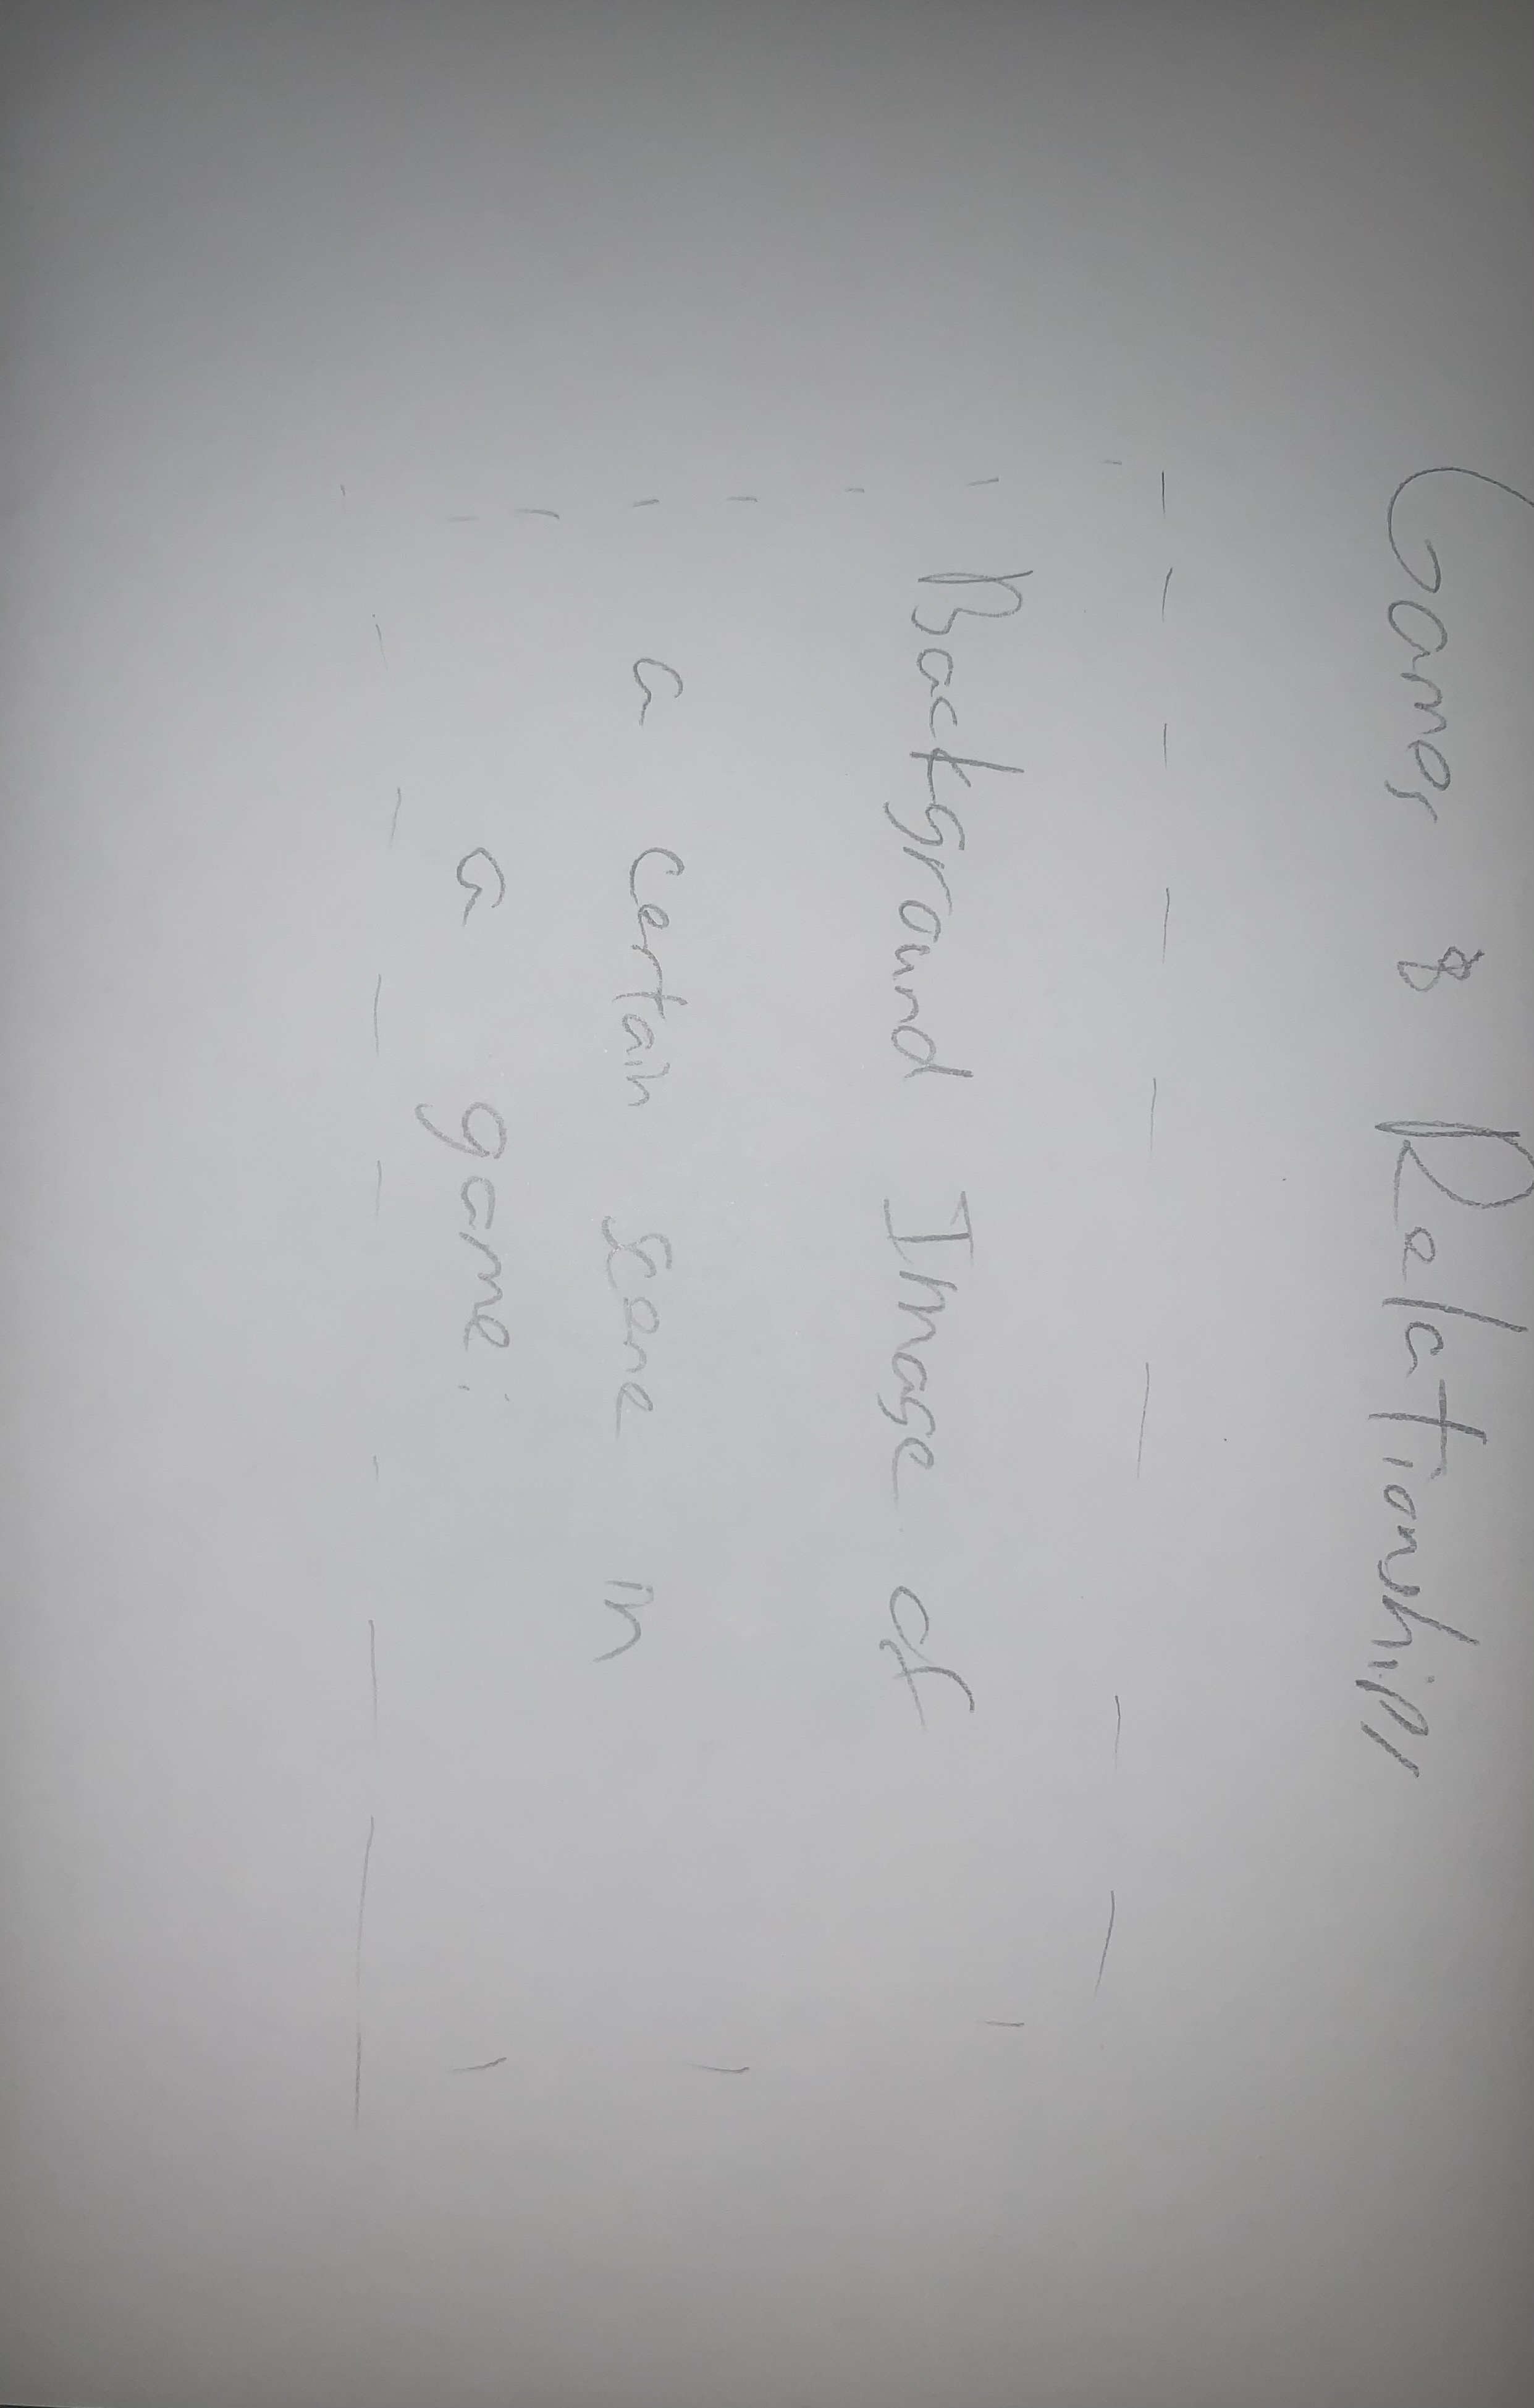 Games & Relationships
Background Image of
a certain scene in
a game: